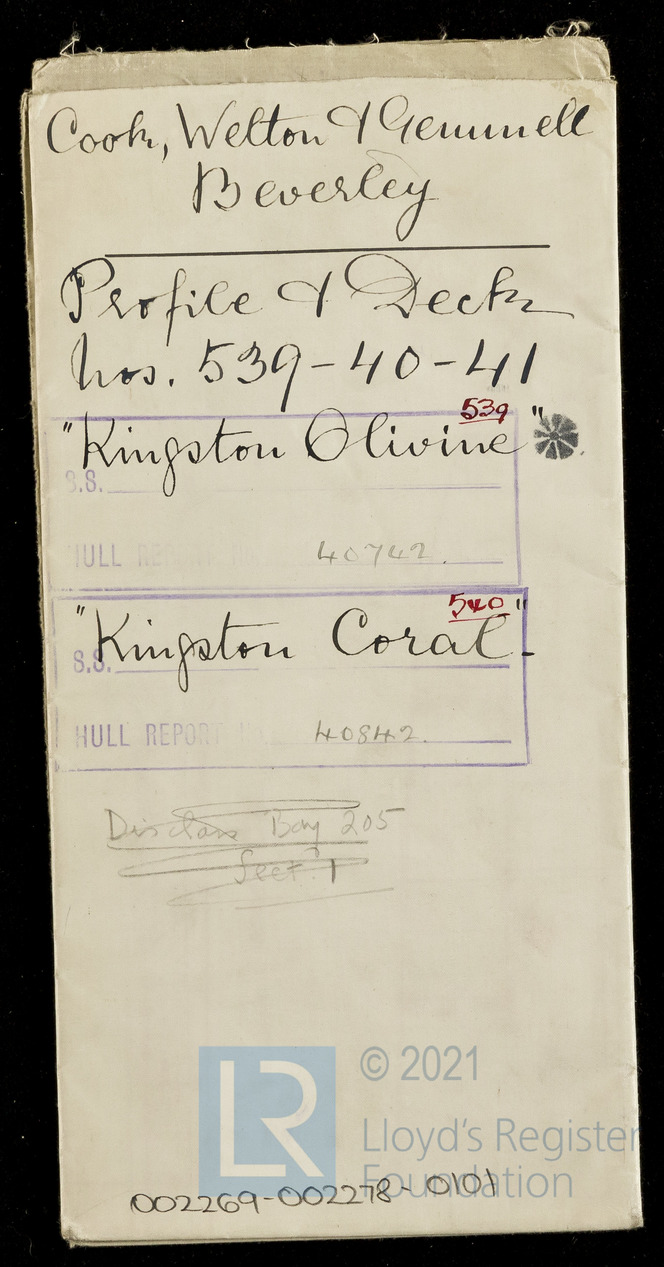 Cook, Welton & Gemmell
Beverley
Profile & Deck
Nos. 539-40-41
539
"Kingston Olivine"
S.S.
HULL REPORT No. 40742.
540
"Kingston Coral"
S.S.
HULL REPORT No. 40842.
Disclass Bay 205
Sect. 1
© 2021
LR
Lloyd's Register
Foundation
002269-002278-0101